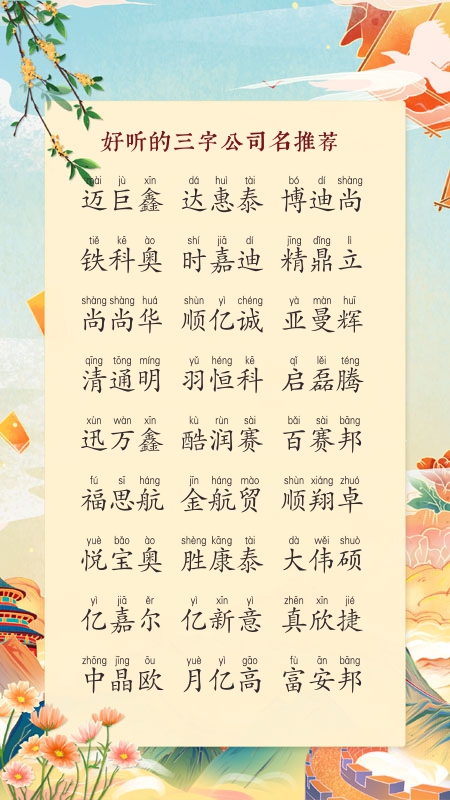 好听的三字公司名推荐
mài jù xīn dá huì tài bó dí shàng
迈巨鑫 达惠泰 博迪尚
tiě kē ào shí jiā dí jīng dǐng lì
铁科奥 时嘉迪 精鼎立
shàng shàng huá shùn yì chéng yà màn huī
尚尚华 顺亿诚 亚曼辉
qīng tōng míng yǔ héng kē qǐ lěi téng
清通明 羽恒科 启磊腾
xùn wàn xīn kù rùn sài bǎi sài bāng
迅万鑫 酷润赛 百赛邦
fú sī háng jīn háng mào shùn xiáng zhuó
福思航 金航贸 顺翔卓
yuè bǎo ào shèng kāng tài dà wěi shuò
悦宝奥 胜康泰 大伟硕
yì jiā ěr yì xīn yì zhēn xīn jié
亿嘉尔 亿新意 真欣捷
zhōng jīng ōu yuè yì gāo fù ān bāng
中晶欧 月亿高 富安邦